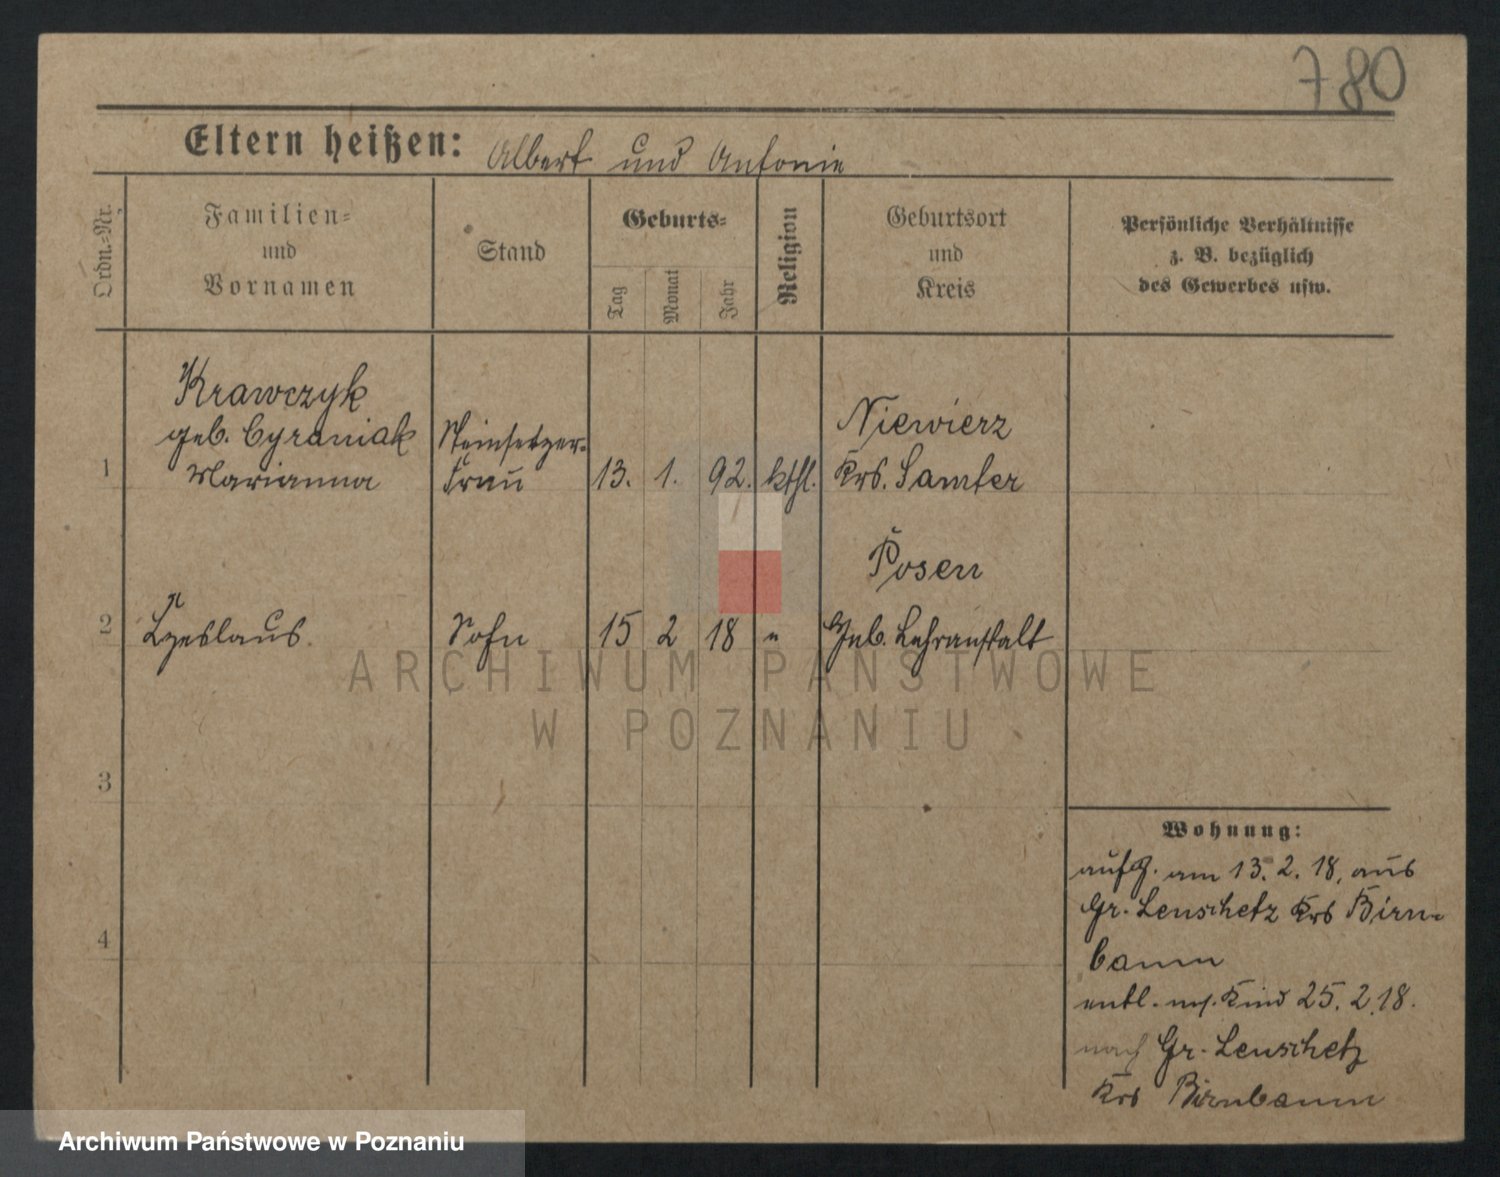 780
Eltern heißen: Albert und Antonie
Ordn.-Nr.
Familien-
und
Vornamen
Stand
Geburts-
Tag
Monat
Jahr
Religion
Geburtsort
und
Kreis
Persönliche Verhältnisse
z. B. bezüglich
des Gewerbes usw.
Krawczyk
geb. Cyraniak
1 Marianna
Steinsetzer-
Frau
13. 1. 92. kthl.
Niewierz
Krs. Samter
2 Czeslaus.
Sohn 15 2 18 "
Posen
Geb. Lehranstalt
ARCHIWUM PAŃSTWOWE
W POZNANIU
3
4
Wohnung:
aufg. am 13. 2. 18, aus
Gr. Lenschetz Krs Birn-
baum
entl. m. Kind 25. 2. 18.
nach Gr. Lenschetz
Krs Birnbaum
Archiwum Państwowe w Poznaniu